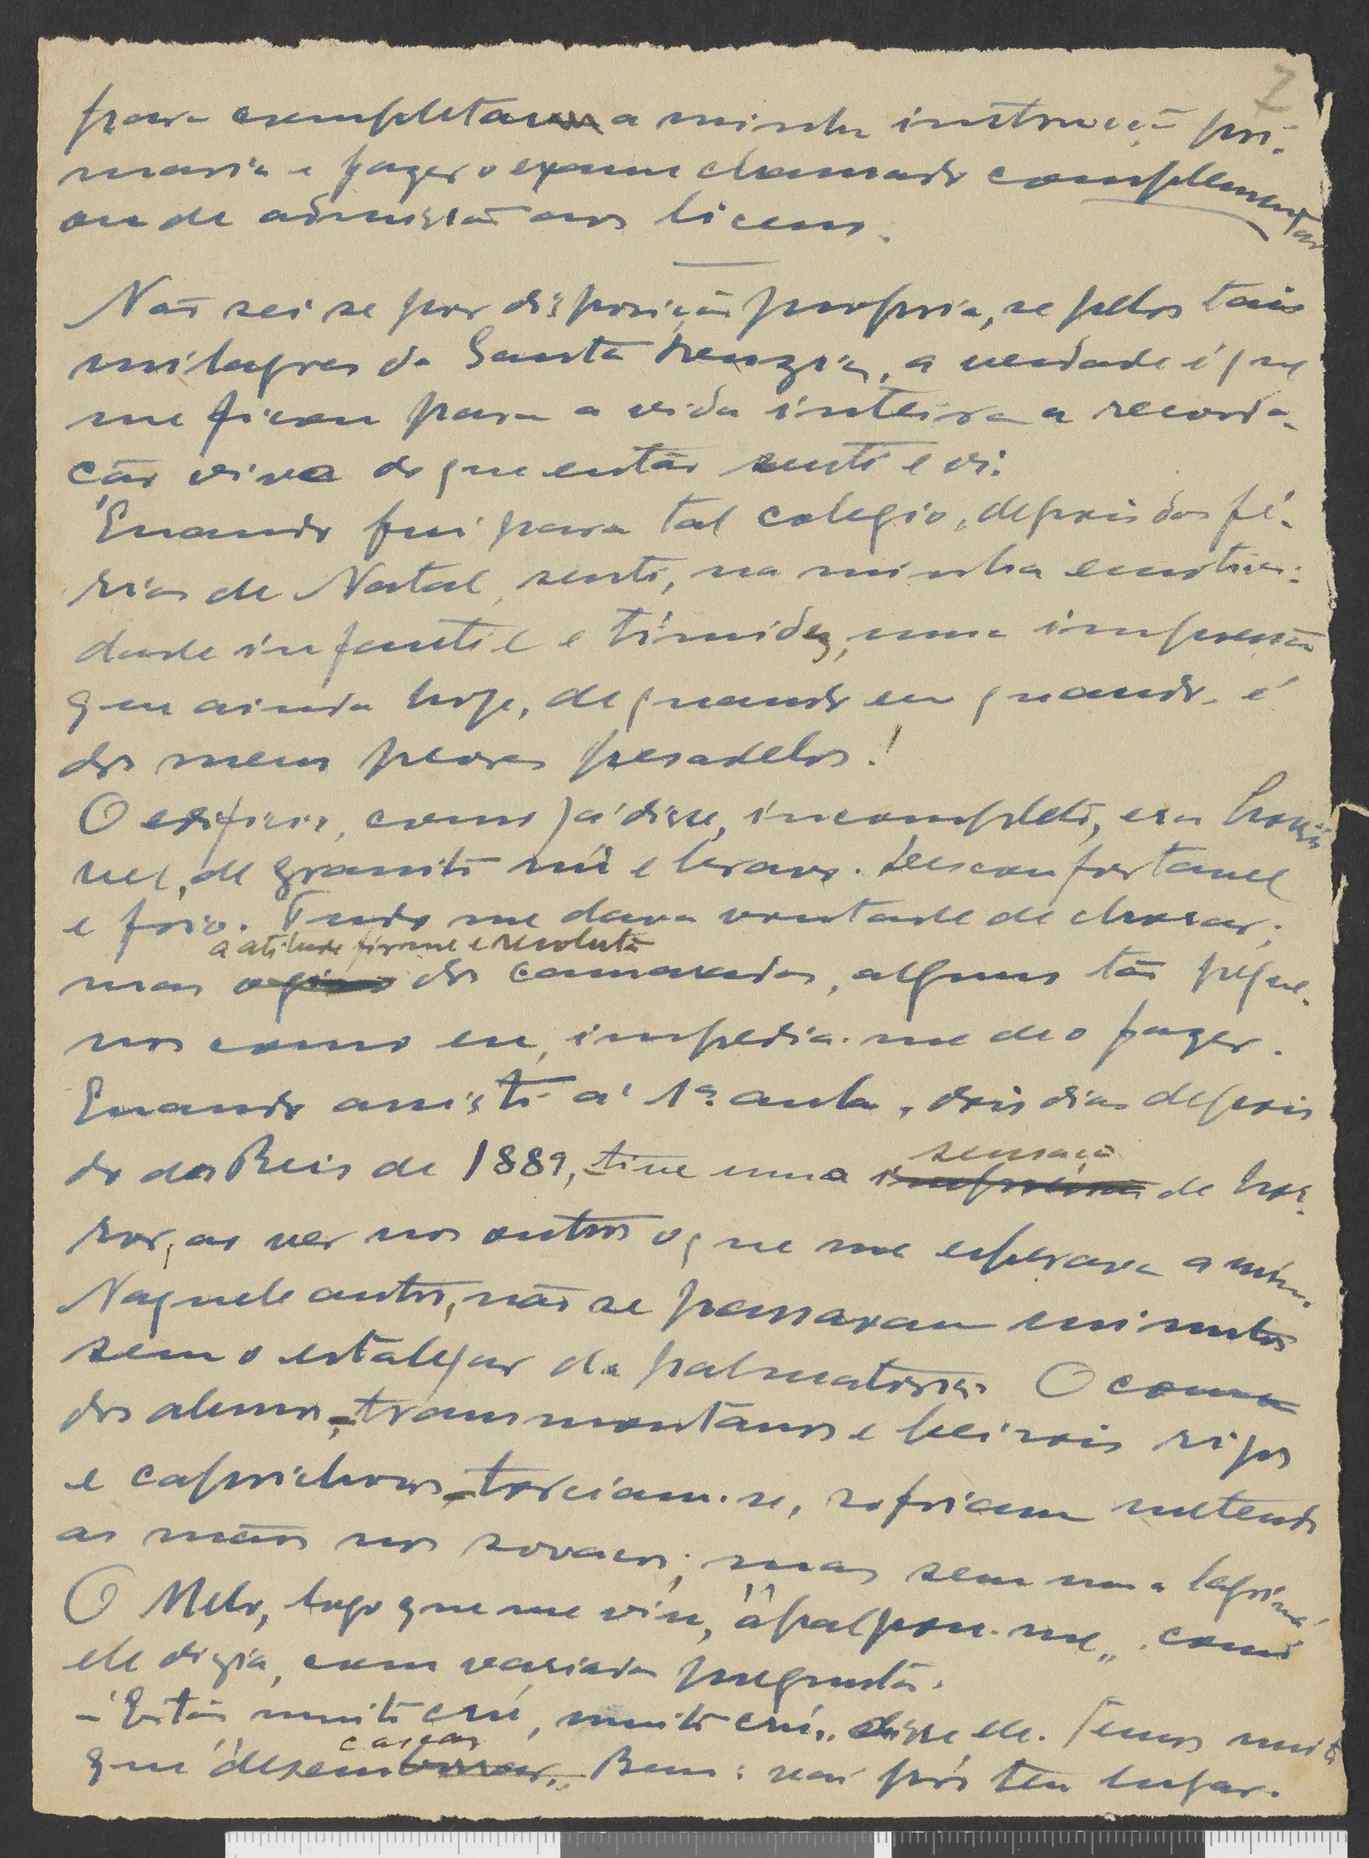 7
para completar a minha instrucção pri-
maria e fazer o exame chamado complementar
ou de admissão aos liceus.
Não sei se por disposição propria, se pelos tais
milagres da Santa, a verdade é que
me ficou para a vida inteira a recorda-
ção viva do que então senti e vi.
Quando fui para tal colegio, depois das fé-
rias de Natal, senti, na minha emotivi-
dade infantil e tímidez, uma impressão
que ainda hoje, de quando em quando, é
dos meus peores pesadelos!
O edificio, como já disse, incompleto, era horri-
vel, de granito nú e bravo. Desconfortavel
e frio. Tudo me dava vontade de chorar;
a atitude firme e resoluta
mas dos camaradas, alguns tão peque-
nos como eu, impedia-me de o fazer.
Quando assisti á 1ª aula, dois dias depois
sensação
do dos Reis de 1889, tive uma impressão de hor-
ror, ao ver nos outros o que me esperava a mim.
Naquele antro, não se passavam minutos
sem o estalejar da palmatoria. O comu
dos alunos, - transmontanos e beirois rijos
e caprichosos - torciam-se, sofriam metendo
as mãos nos sovacos; mas sem uma lagrima.
O Melo, logo que me viu, "apalpou-me", como
ele dizia, com variadas preguntas.
- "Estás muito crú, muito crú", disse ele. Temos muito
cascar
que "desemburrar". Bem: vai pró teu lugar.